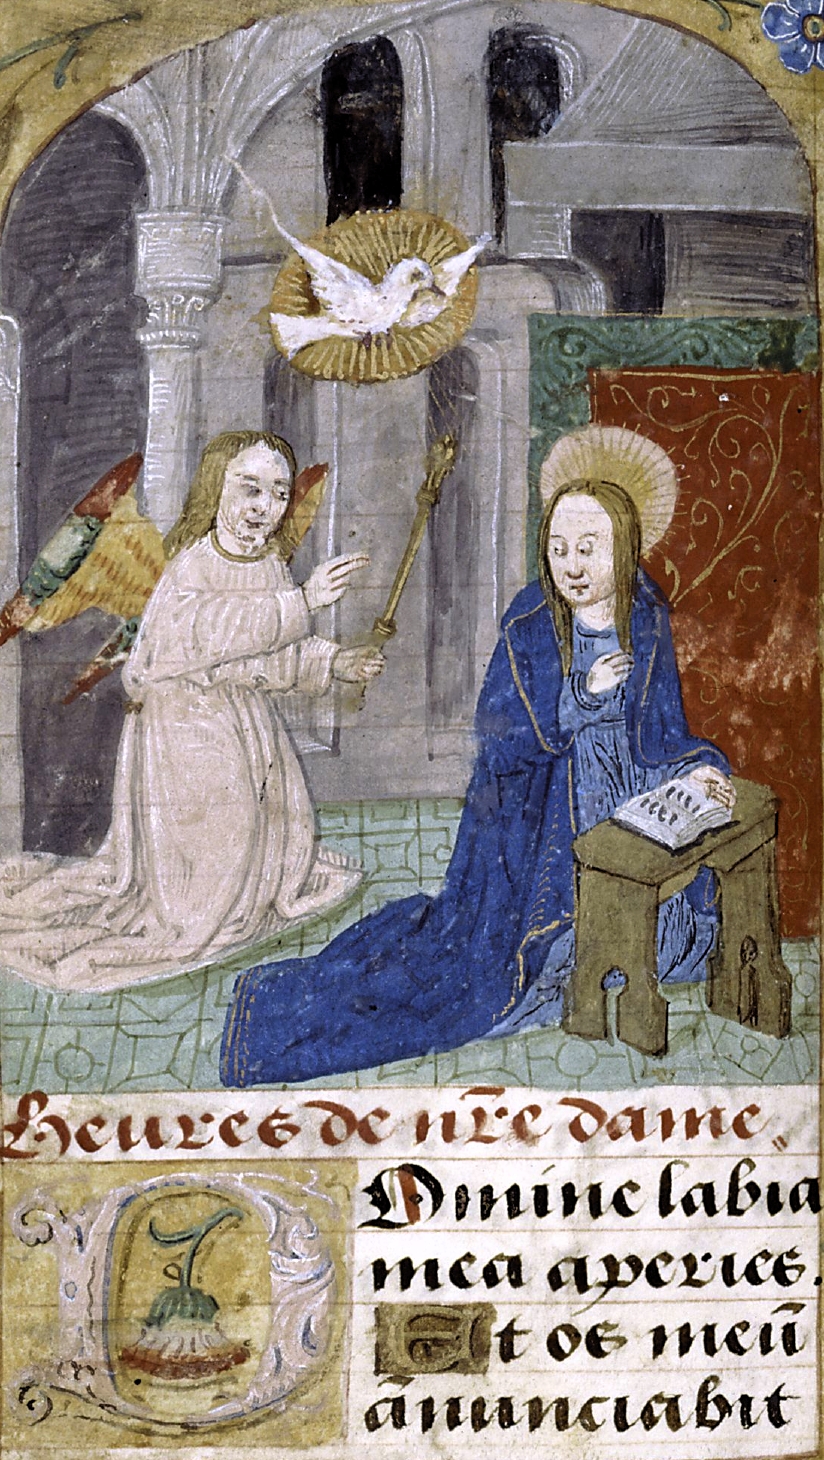 Heures de nr̃e dame,
DOmine labia
mea aperies.
Et os meũ
ãnunciabit